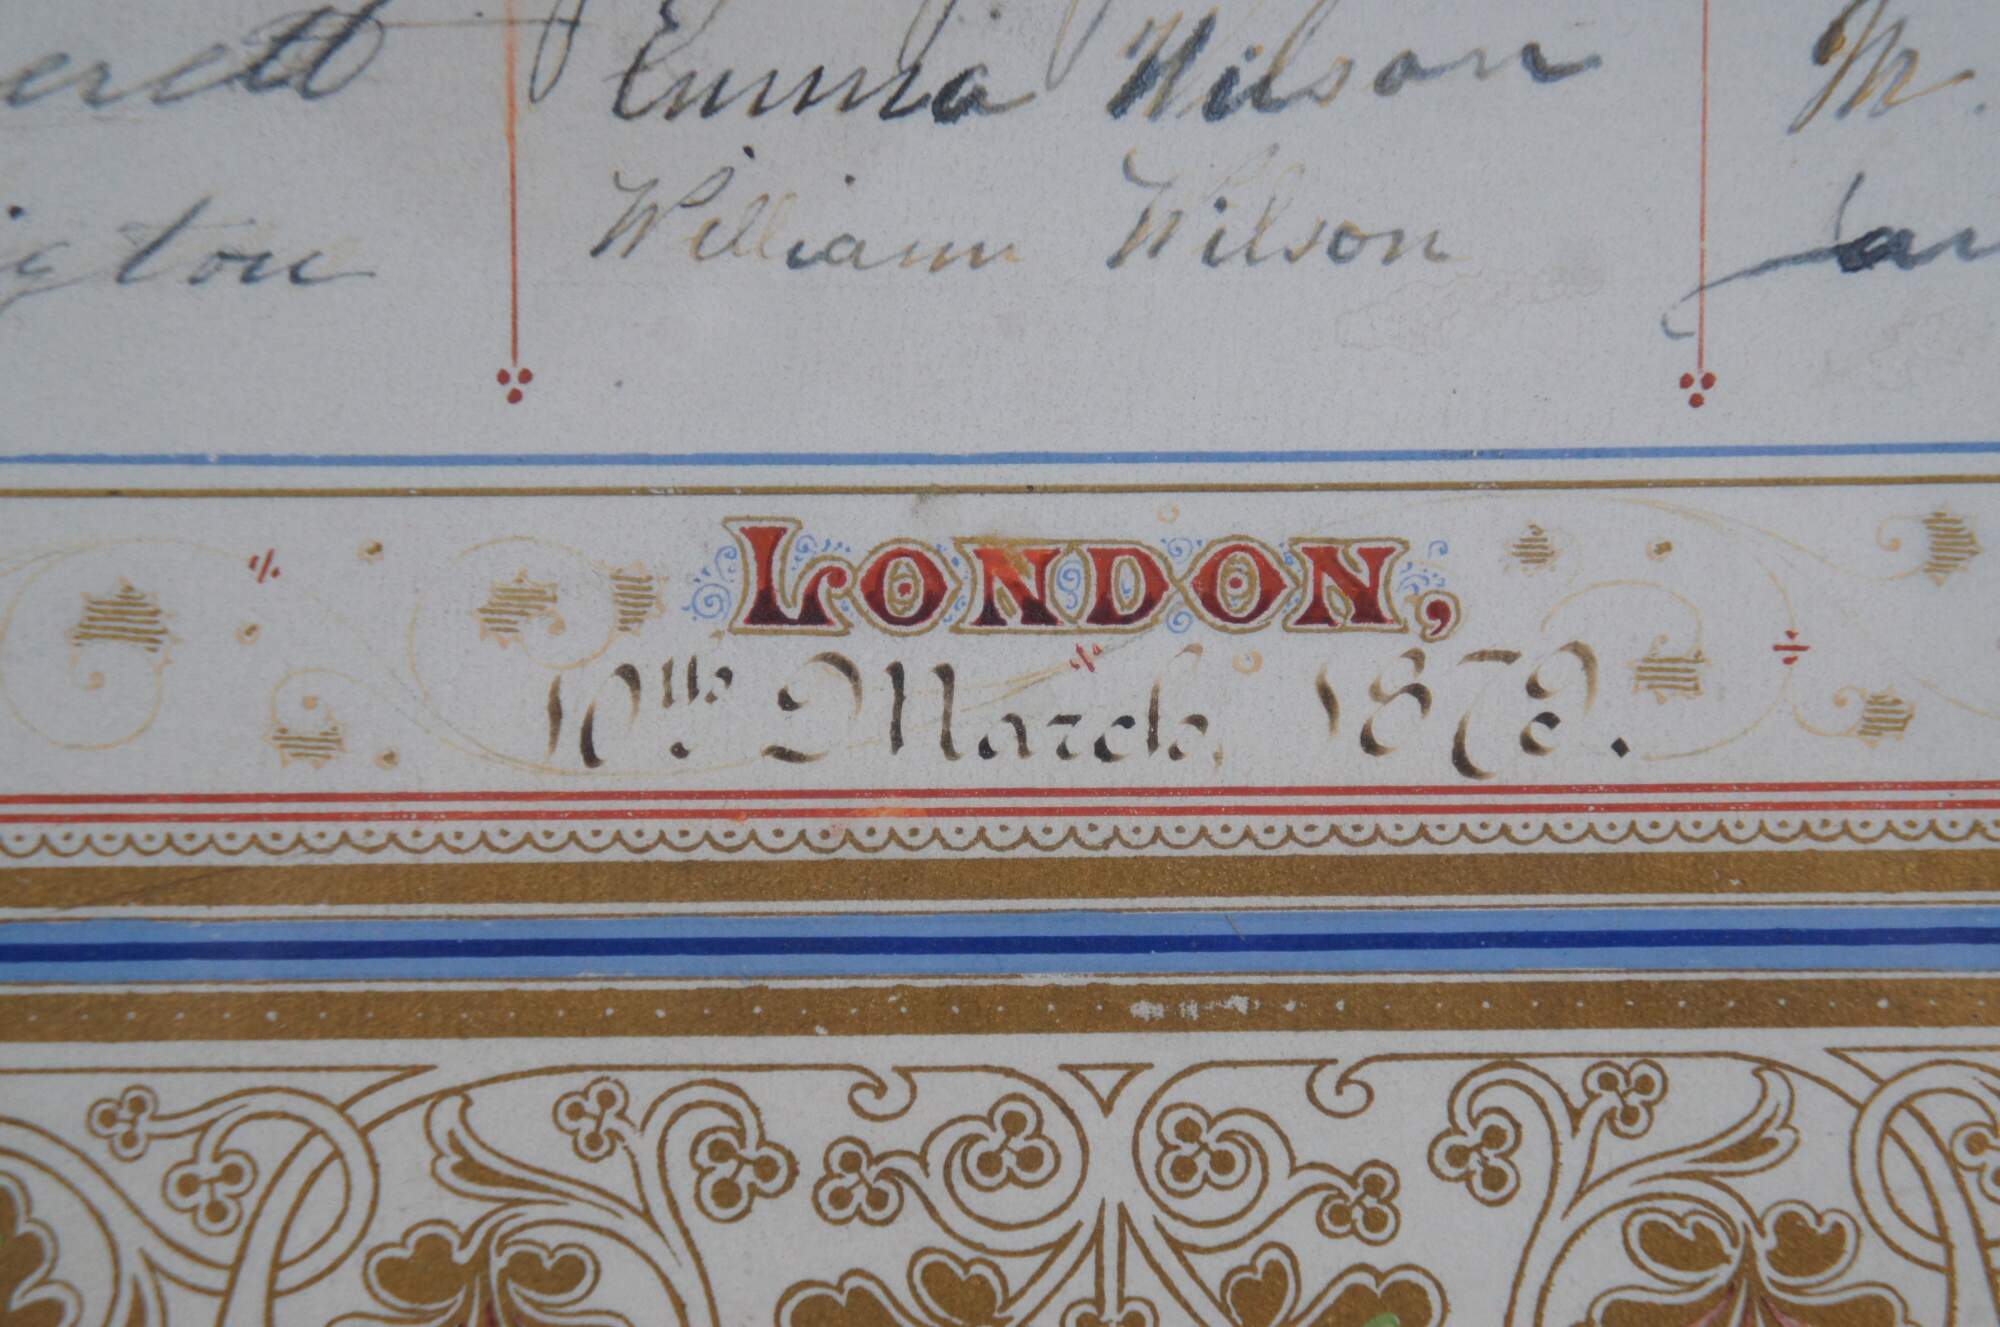 erett Emma Wilson M.
gton William Wilson
LONDON,
10th March,